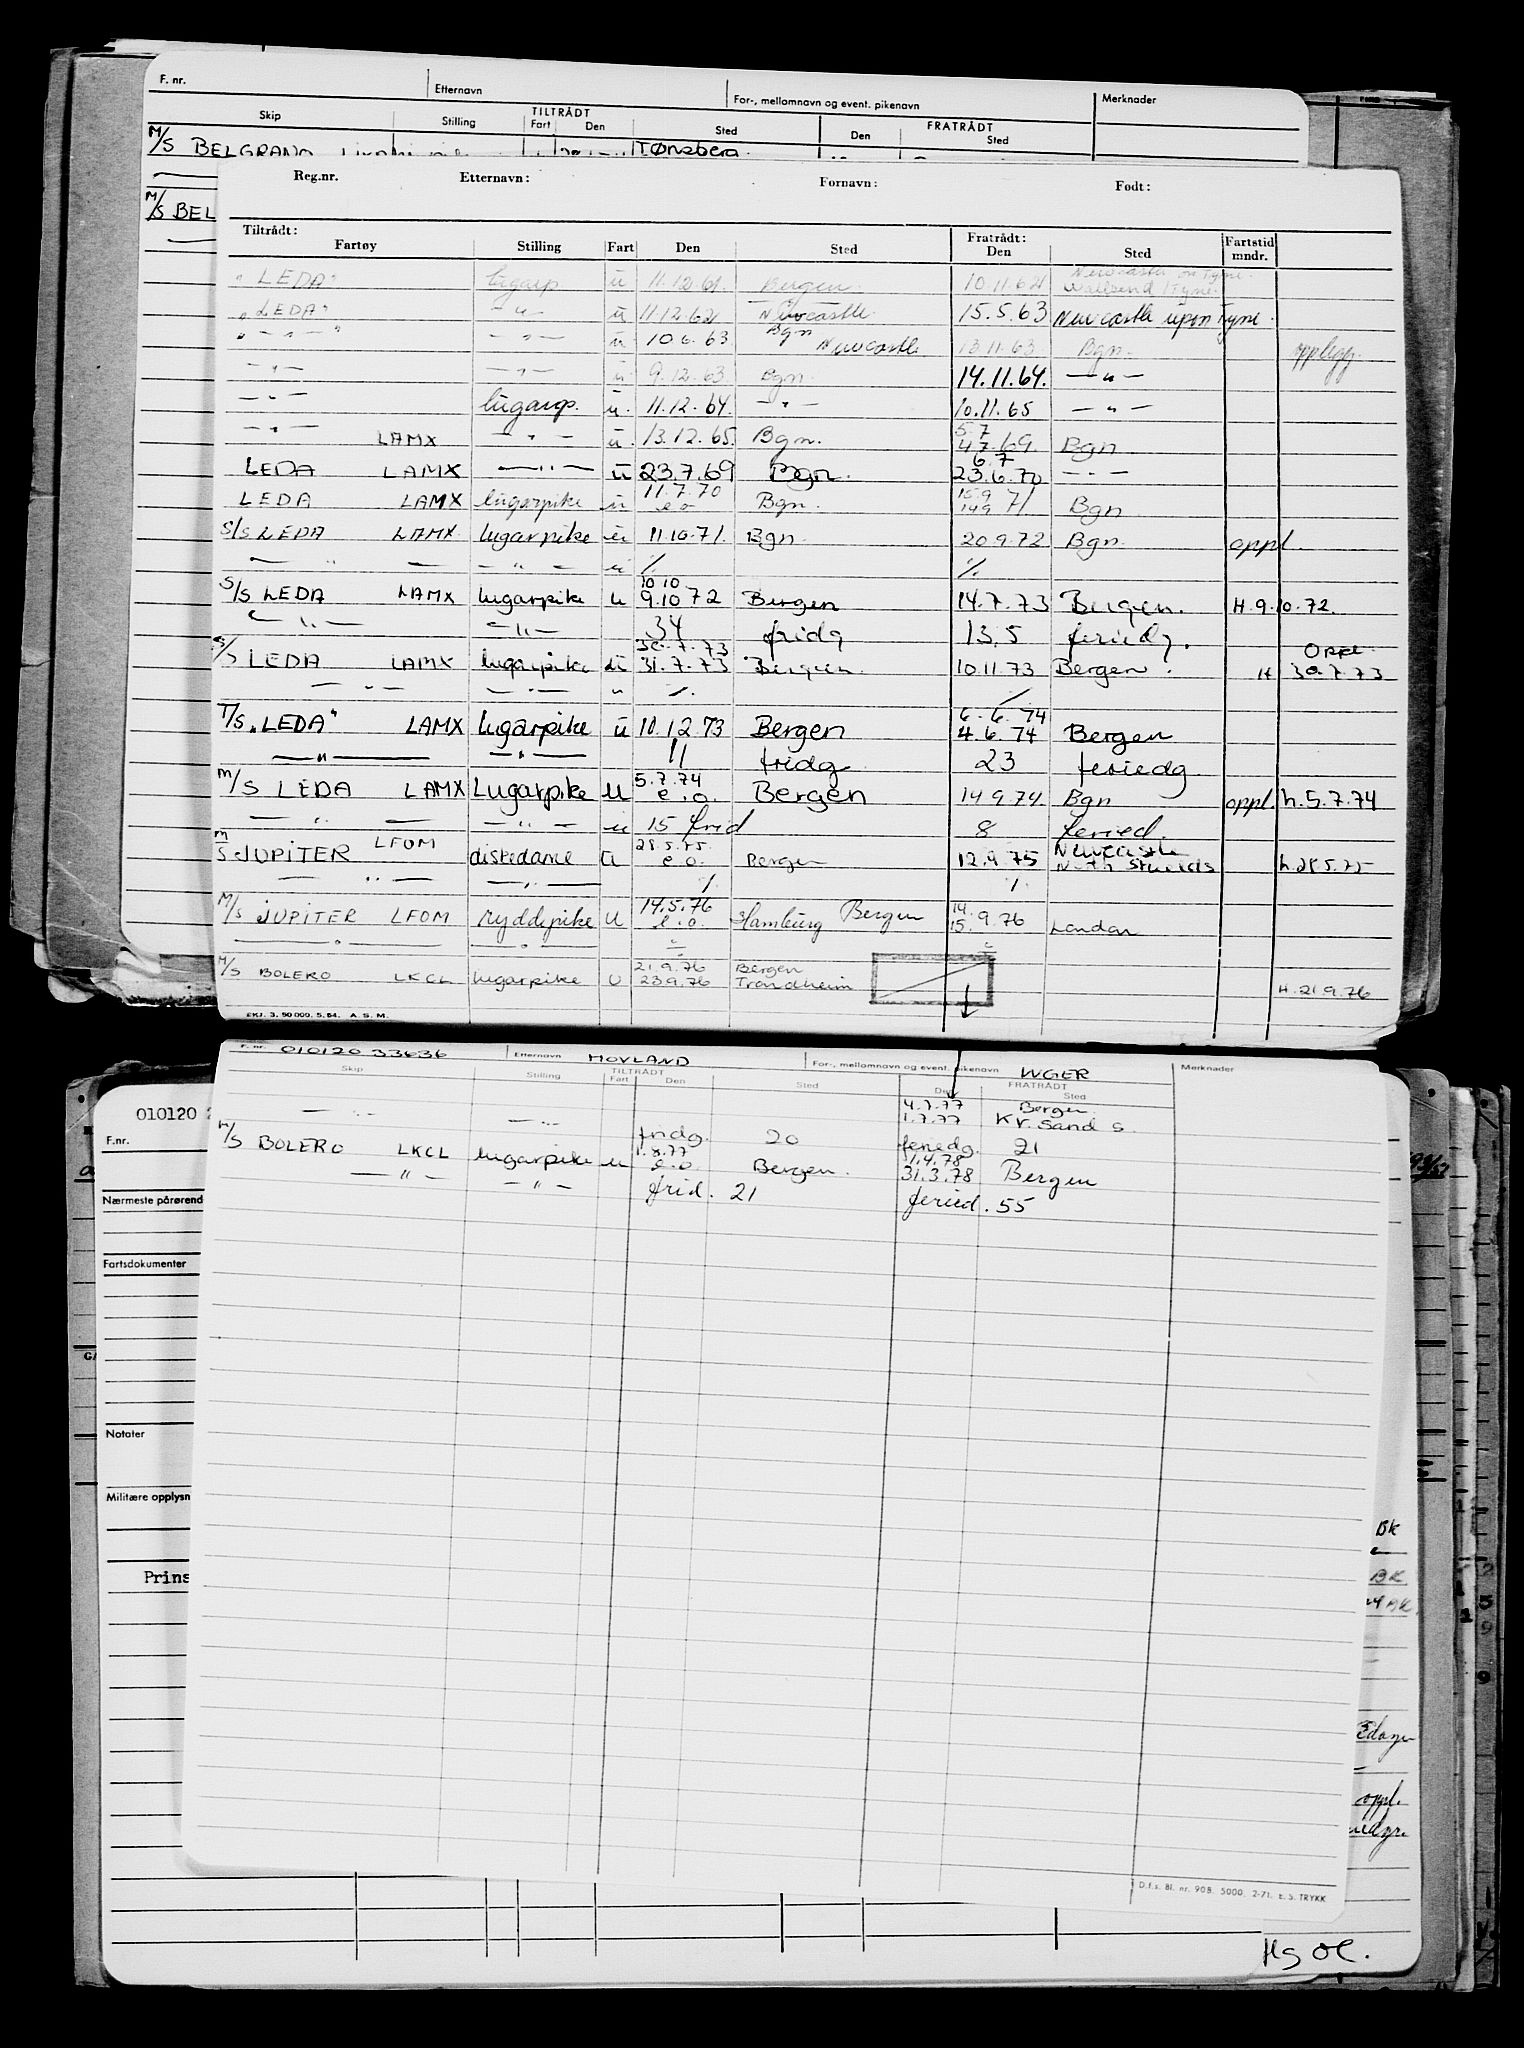 F. nr. Etternavn For-, mellomnavn og event. pikenavn Merknader
Skip Stilling TILTRÅDT Fart Den Sted FRATRÅDT Den Sted
M/S BELGRANO Tønsberg
M/S BEL
Reg.nr. Etternavn: Fornavn: Født:
Tiltrådt: Fartøy Stilling Fart Den Sted Fratrådt: Den Sted Fartstid mndr.
"LEDA" lugarp. u 11.12.61. Bergen. 10.11.62 Newcastle on Tyne. Wallsend /Tyne.
"LEDA" - " - u 11.12.62 Newcastle. 15.5.63 Newcastle upon Tyne.
" - " - " - " - u 10.6.63. Bgn Newcastle 13.11.63. Bgn. opplegg.
- " - - " - u 9.12.63. Bgn. 14.11.64. - " -
- " - lugarp. u. 11.12.64. - " - 10.11.65 - " -
- " - LAMX - " - u. 13.12.65. Bgn. 5.7 4.7.69 Bgn
LEDA LAMX - " - u 23.7.69 Bgn. 6.7 23.6.70 - " -
LEDA LAMX lugarpike u 11.7.70 e.o Bgn. 15.9 14.9 71 Bgn
S/S LEDA LAMX lugarpike u 11.10.71. Bgn 20.9.72 Bgn. oppl.
- " - - " - u % %
S/S LEDA LAMX lugarpike u 10.10. 9.10 72 Bergen 14.7.73 Bergen. H.9.10.72.
- " - - " - 34 fridg 13.5 feriedg.
S/S LEDA LAMX lugarpike u 30.7.73 31.7.73 Bergen 10.11.73 Bergen. Oppl. H 30.7.73
- " - - " - " % /
T/S "LEDA" LAMX lugarpike u 10.12.73 Bergen 6.6.74 4.6.74 Bergen
- " - - " - 11 fridg 23 feriedg.
M/S LEDA LAMX Lugarpike u 5.7.74 e.o. Bergen 14.9.74. Bgn oppl. h.5.7.74
- " - - " - u 15 frid 8 feried.
M/S JUPITER LFOM u 28.5.75. e.o. Bergen 12.9.75 Newcastle North Shields h.28.5.75
- " - - " - % %
M/S JUPITER LFOM ryddepike u 14.5.76 e.o. Hamburg Bergen 14. 15. 9.76 London
- " - - " -
M/S BOLERO LKCL lugarpike u 21.9.76 23.9.76 Bergen Trondheim H.21.9.76
EKJ. 3. 50 000. 5. 64. A. S. M.
F. nr. 010120 33636 Etternavn HOVLAND For-, mellomnavn og event. pikenavn INGER Merknader
Skip Stilling TILTRÅDT Fart Den Sted FRATRÅDT Den Sted
- " - - " - 4.7.77 1.7.77 Bergen Kr.sand S.
fridg. 20 feriedg. 21
M/S BOLERO LKCL lugarpike u 1.8.77 e.o. Bergen. 1.4.78 31.3.78 Bergen
- " - - " - frid. 21 feried. 55
D.f.s. Bl. nr. 90B. 5000. 2-71. E. S. TRYKK
010120
F.nr.
Nærmeste pårørend
Fartsdokumenter
Notater
Militære opplysn
Prins
BK
BK
BK
oppl.